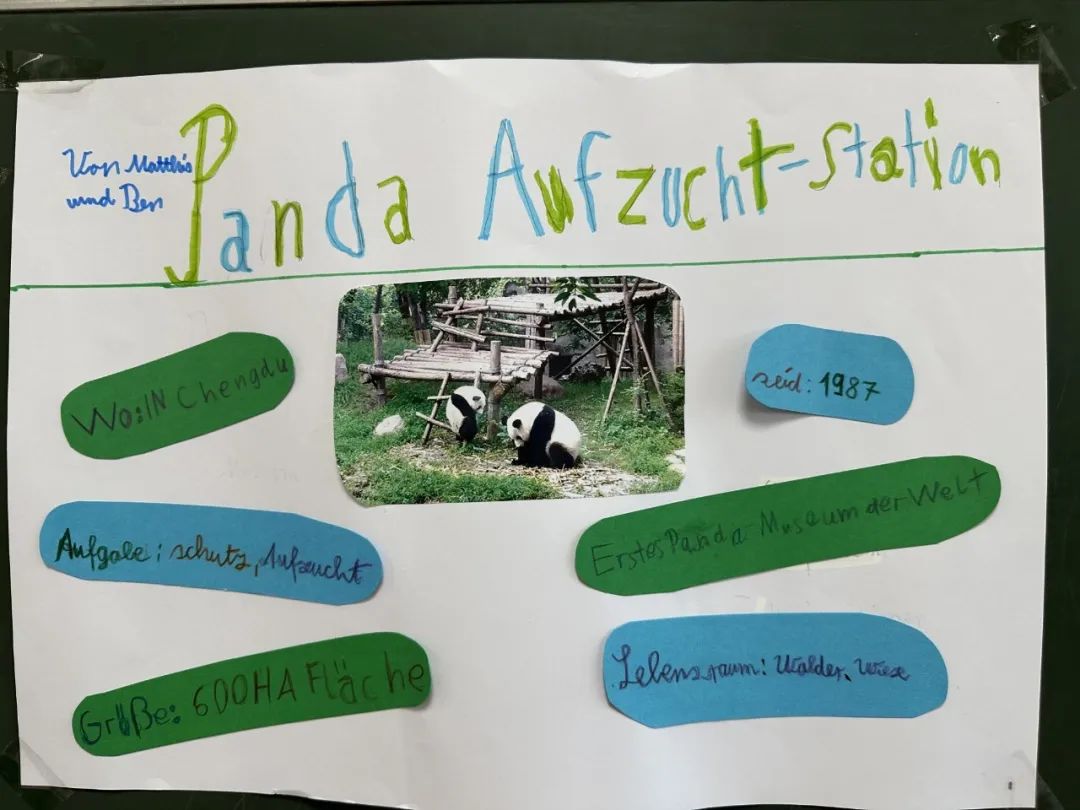 Panda Aufzucht-Station
Von Matthis
und Ben
Wo: IN Chengdu
seid: 1987
Aufgabe: schutz, Aufzucht
Erstes Panda-Museum der Welt
Größe: 600HA Fläche
Lebensraum: Wälder, Wiese